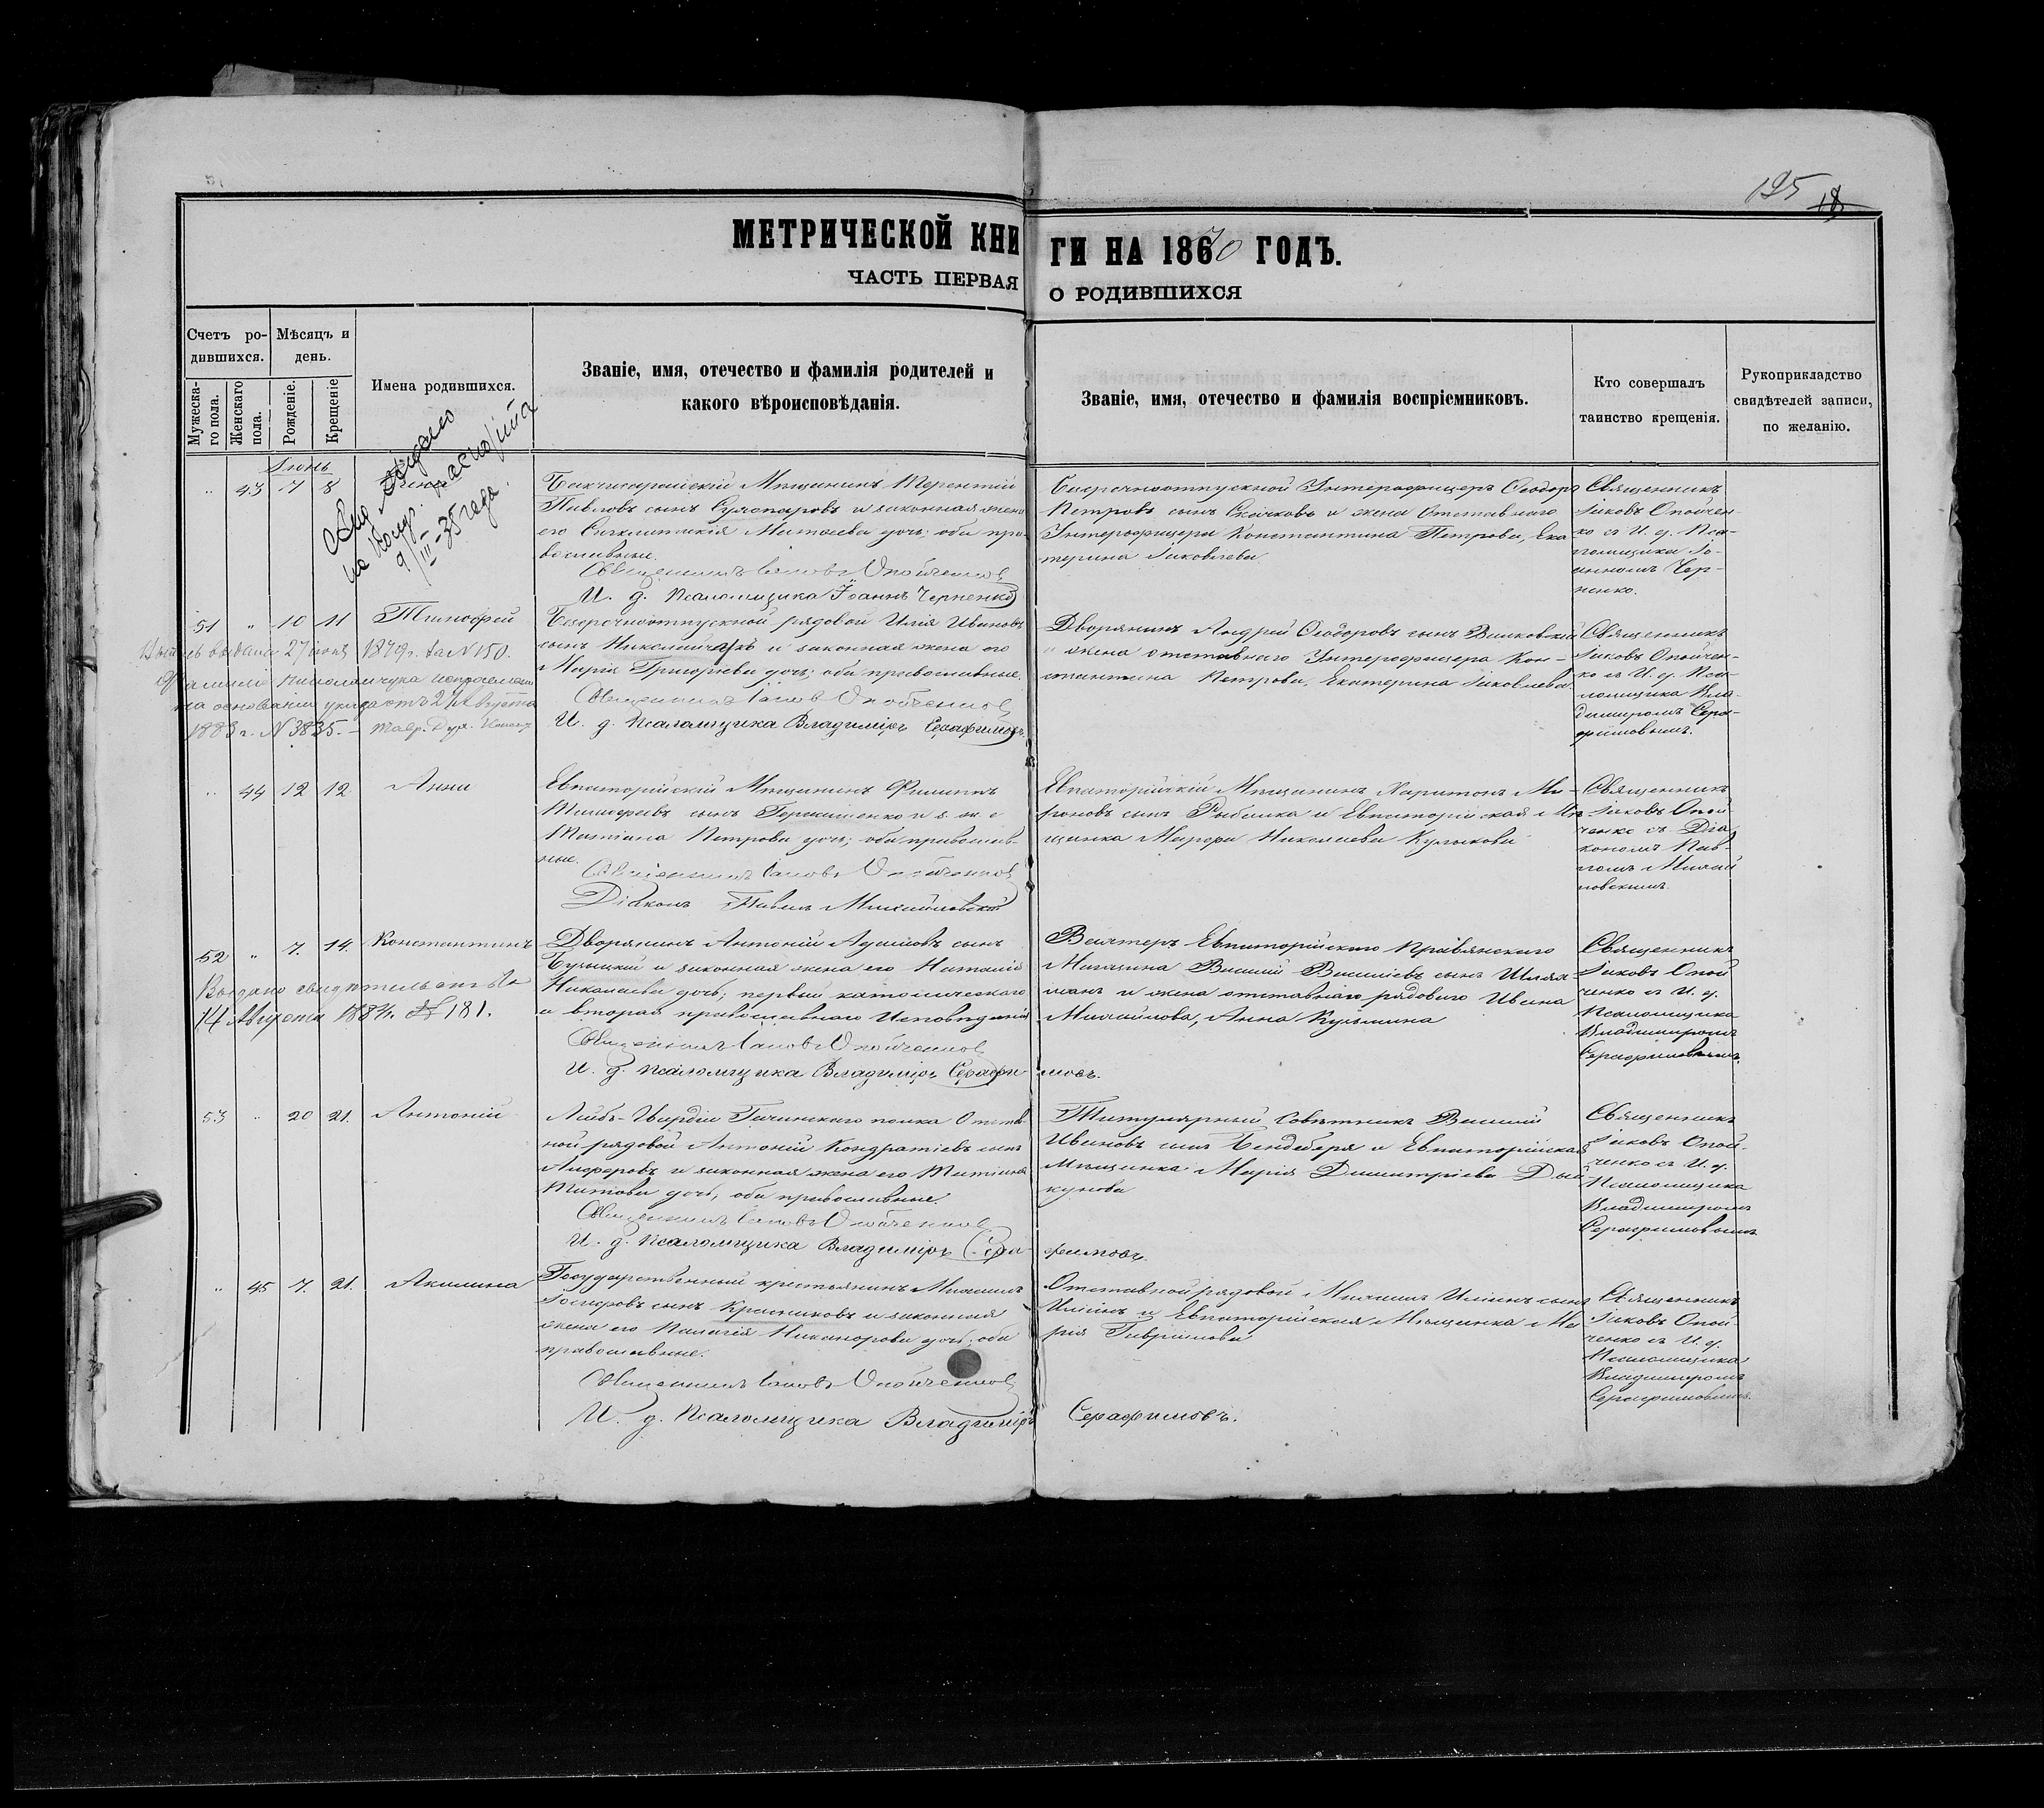 125 18
МЕТРИЧЕСКОЙ КНИГИ НА 1870 ГОДЪ.
ЧАСТЬ ПЕРВАЯ О РОДИВШИХСЯ
Счетъ ро-
дившихся.
Мужеска-
го пола.
Женскаго
пола.
Мѣсяцъ и
день.
Рожденіе.
Крещеніе
Имена родившихся.
Званіе, имя, отечество и фамилія родителей и
какого вѣроисповѣданія.
Званіе, имя, отечество и фамилія воспріемниковъ.
Кто совершалъ
таинство крещенія.
Рукоприкладство
свидѣтелей записи,
по желанію.
Іюнь
" 43 7 8
выдано
паспорта
9/III-35 года.
Бакчисарайскій Мѣщанинъ Терентій
Павловъ сынъ и законная жена
его Синклитикія Матвеева дочь; оба пра-
вославные.
Священникъ Іаковъ Опойченко
И. д. Псаломщика Іоаннъ Черненко
Безсрочноотпускной Унтерофицеръ Ѳеодоръ
Петровъ сынъ Скачковъ и жена Отставнаго
Унтерофицера Константина Петрова, Ека-
терина Іаковлева
Священникъ
Іаковъ Опойчен-
ко съ И. д. Пса-
ломщика Іо-
анномъ Чер-
ненко.
51 " 10 11 Тимофей
выдана 27 іюня 1879 г. за N 150.
Фамилія Николайчука исправлена
на основаніи указа отъ 27 Августа
1883 г. N 3835. - Тавр. Дух. Консист.
Безсрочноотпускной рядовой Илія Ивановъ
сынъ Николайчукъ и законная жена его
Марія Григорьева дочь; оба православные.
Священникъ Іаковъ Опойченко
И. д. Псаломщика Владиміръ Серафимовъ.
Дворянинъ Андрей Ѳеодоровъ сынъ Волковскій
и жена отставнаго Унтерофицера Кон-
стантина Петрова, Екатерина Іаковлева
Священникъ
Іаковъ Опойчен-
ко съ И. д. Пса-
ломщика Вла-
диміромъ Сера-
фимовымъ.
" 44 12 12 Анна
Евпаторійскій Мѣщанинъ Филиппъ
Тимофеевъ сынъ Герасименко и з. ж. е
Татіана Петрова дочь; оба православ-
ные.
Священникъ Іаковъ Опойченко
Діаконъ Павелъ Михайловскій
Евпаторійскій Мѣщанинъ Харитонъ Ми-
роновъ сынъ Рыбалка и Евпаторійская Мѣ-
щанка Марфа Николаева Куликова
Священникъ
Іаковъ Опой-
ченко съ Діа-
кономъ Пав-
ломъ Михай-
ловскимъ.
52 " 7. 14. Константинъ
Выдано свидѣтельство
14 Августа 1884. № 181.
Дворянинъ Антоній Адамовъ сынъ
и законная жена его Наталія
Николаева дочь; первый католическаго
а вторая православнаго Исповѣданія
Священникъ Іаковъ Опойченко
И. д. Псаломщика Владиміръ Серафимовъ.
Вахтеръ Евпаторійскаго Провіянскаго
Магазина Василій Васильевъ сынъ
и жена отставнаго рядоваго Ивана
Михайлова, Анна Кузьмина
Священникъ
Іаковъ Опой-
ченко съ И. д.
Псаломщика
Владиміромъ
Серафимовымъ.
53 " 20 21. Антоній
Лейбъ-Гвардіи Гатчинскаго полка Отстав-
ной рядовой Антоній Кондратіевъ сынъ
Алферовъ и законная жена его Татіана
Титова дочь, оба православные.
Священникъ Іаковъ Опойченко
И. д. Псаломщика Владиміръ Серафимовъ.
Титулярный Совѣтникъ Василій
Ивановъ сынъ Бендебери и Евпаторійская
Мѣщанка Марія Димитріева Дый-
кунова
Священникъ
Іаковъ Опой-
ченко съ И. д.
Псаломщика
Владиміромъ
Серафимовымъ
" 45 7. 21. Акилина
Государственный крестьянинъ Михаилъ
сынъ Красниковъ и законная
жена его Палагія Никанорова дочь, оба
православные.
Священникъ Іаковъ Опойченко
И. д. Псаломщика Владиміръ Серафимовъ.
Отставной рядовой Михаилъ Ильинъ сынъ
Ильинъ и Евпаторійская Мѣщанка Ма-
рія Гаврилова
Священникъ
Іаковъ Опой-
ченко съ И. д.
Псаломщика
Владиміромъ
Серафимовымъ.